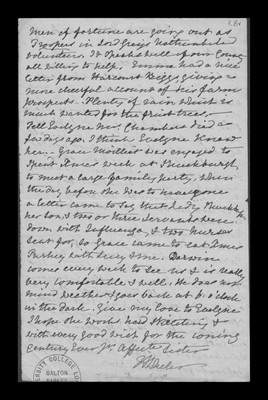 Men of fortune are going out as
Troopers in Lord Grey's
Volunteers. It speaks well for our Country
all willing to help. Emma had a nice
letter from Harcourt Biggs giving a
more cheerful account of his farm
prospects. Plenty of rain which is
much wanted for the fruit trees.
Tell Evelyne Mr. Chambers died a
few days ago. I think Evelyne knew
her. Grace Moilliet was engaged to
spend Xmas week at Shuckburgh,
to meet a large family party, when
the day before she was to have gone
a letter came to say that Lady Shuckb.
her son, & two or three Servants were
down with Influenza, & two Nurses
sent for, so Grace came to eat Xmas
Turkey with Lucy & me. Darwin
comes every week to see us & is really
very comfortable & well. He does not
mind weather & goes back at 6 o'clock
in the dark. Give my love to Evelyne
I hope she works hard Sketching &
with every good wish for the coming
Century Ever Yr. Affecte Sister
COLLEGE
GALTON